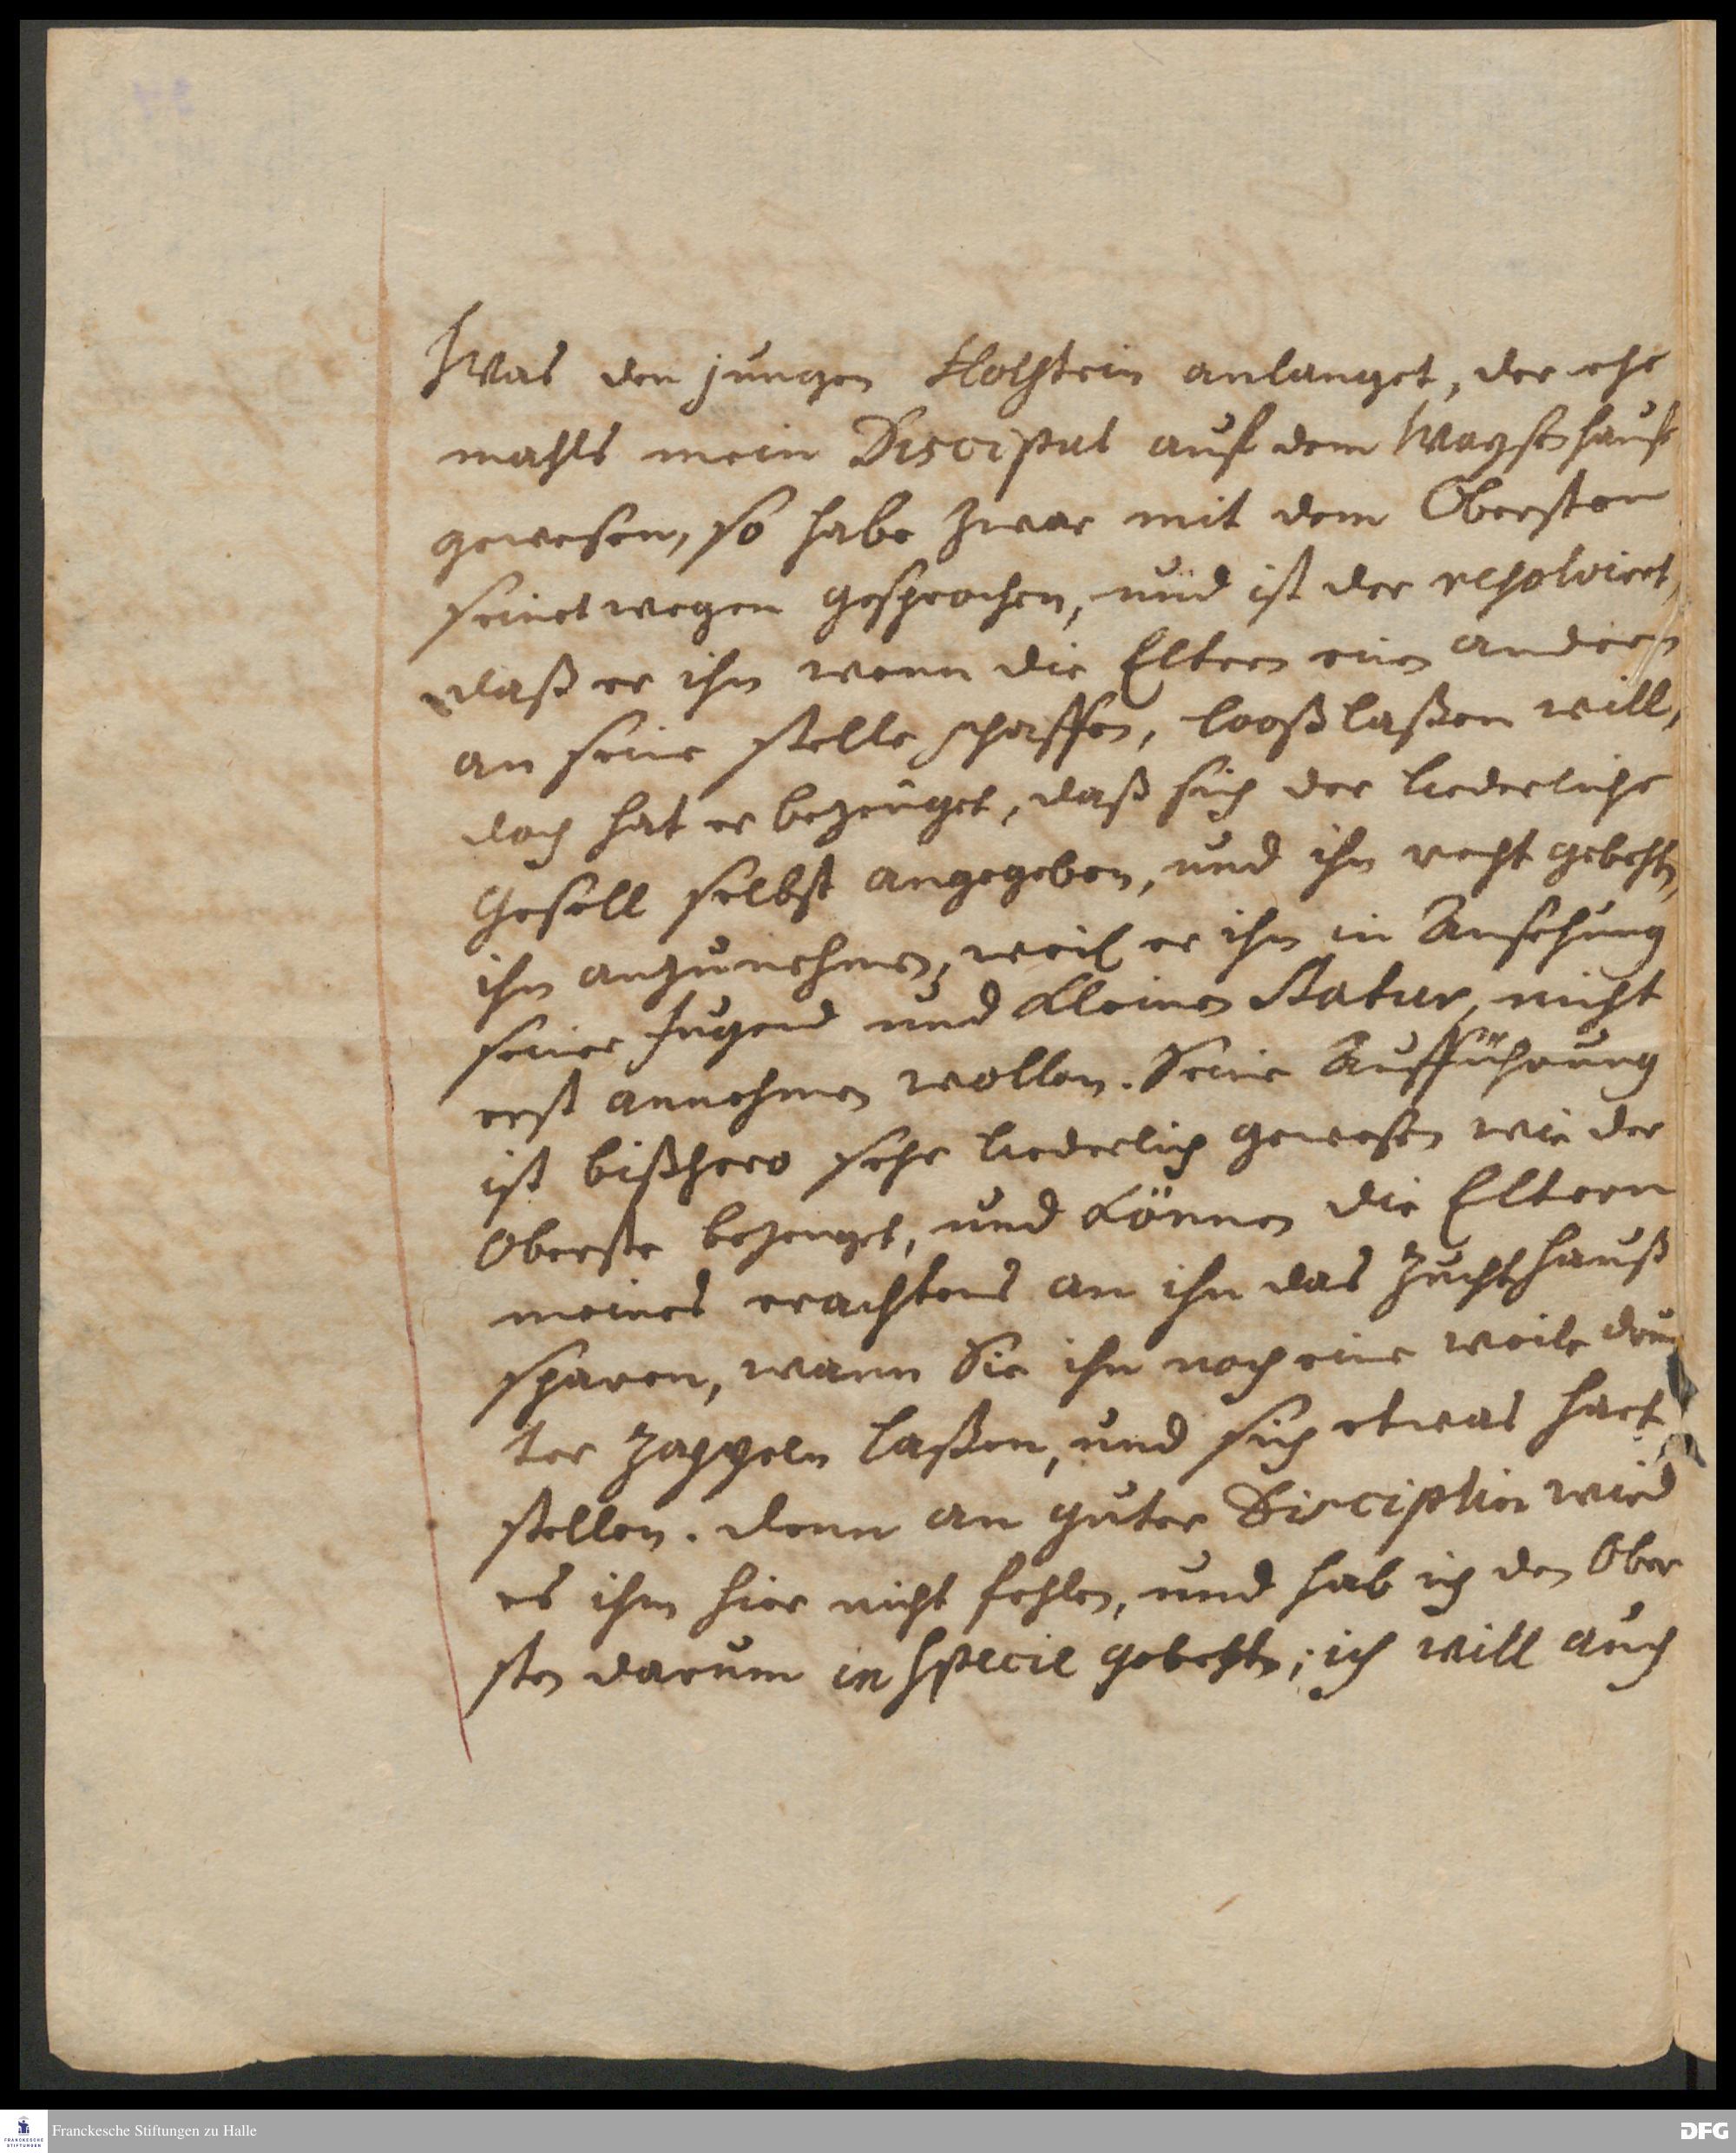 Was den jungen Holstein anlanget, der ehe
mahls mein Discipul auf dem Waysenhauße
gewesen, so habe zwar mit dem Obersten
seinetwegen gesprochen, und ist der resolviret,
daß er ihn wenn die Eltern einen andern
an seine stelle schaffen, looßlaßen will,
doch hat er bezeuget, daß sich der liederliche
Gesell selbst angegeben, und ihn recht gebethen,
ihn anzunehmen, weil er ihn in Ansehung
seiner Jugend und kleinen Statur, nicht
erst annehmen wollen. Seine Aufführung
ist bißhero sehr liederlich gewesen wie der
Oberste bezeuget, und können die Eltern
meines erachtens an ihn das Zuchthauß
sparen, wann Sie ihn noch eine weile drun
ter zappeln laßen, und sich etwas hart
stellen. denn an guter Disciplin wird
es ihm hier nicht fehlen, und hab ich den Ober
sten darum in specie gebethen; ich will auch
Franckesche Stiftungen zu Halle
FRANCKESCHE
STIFTUNGEN
DFG